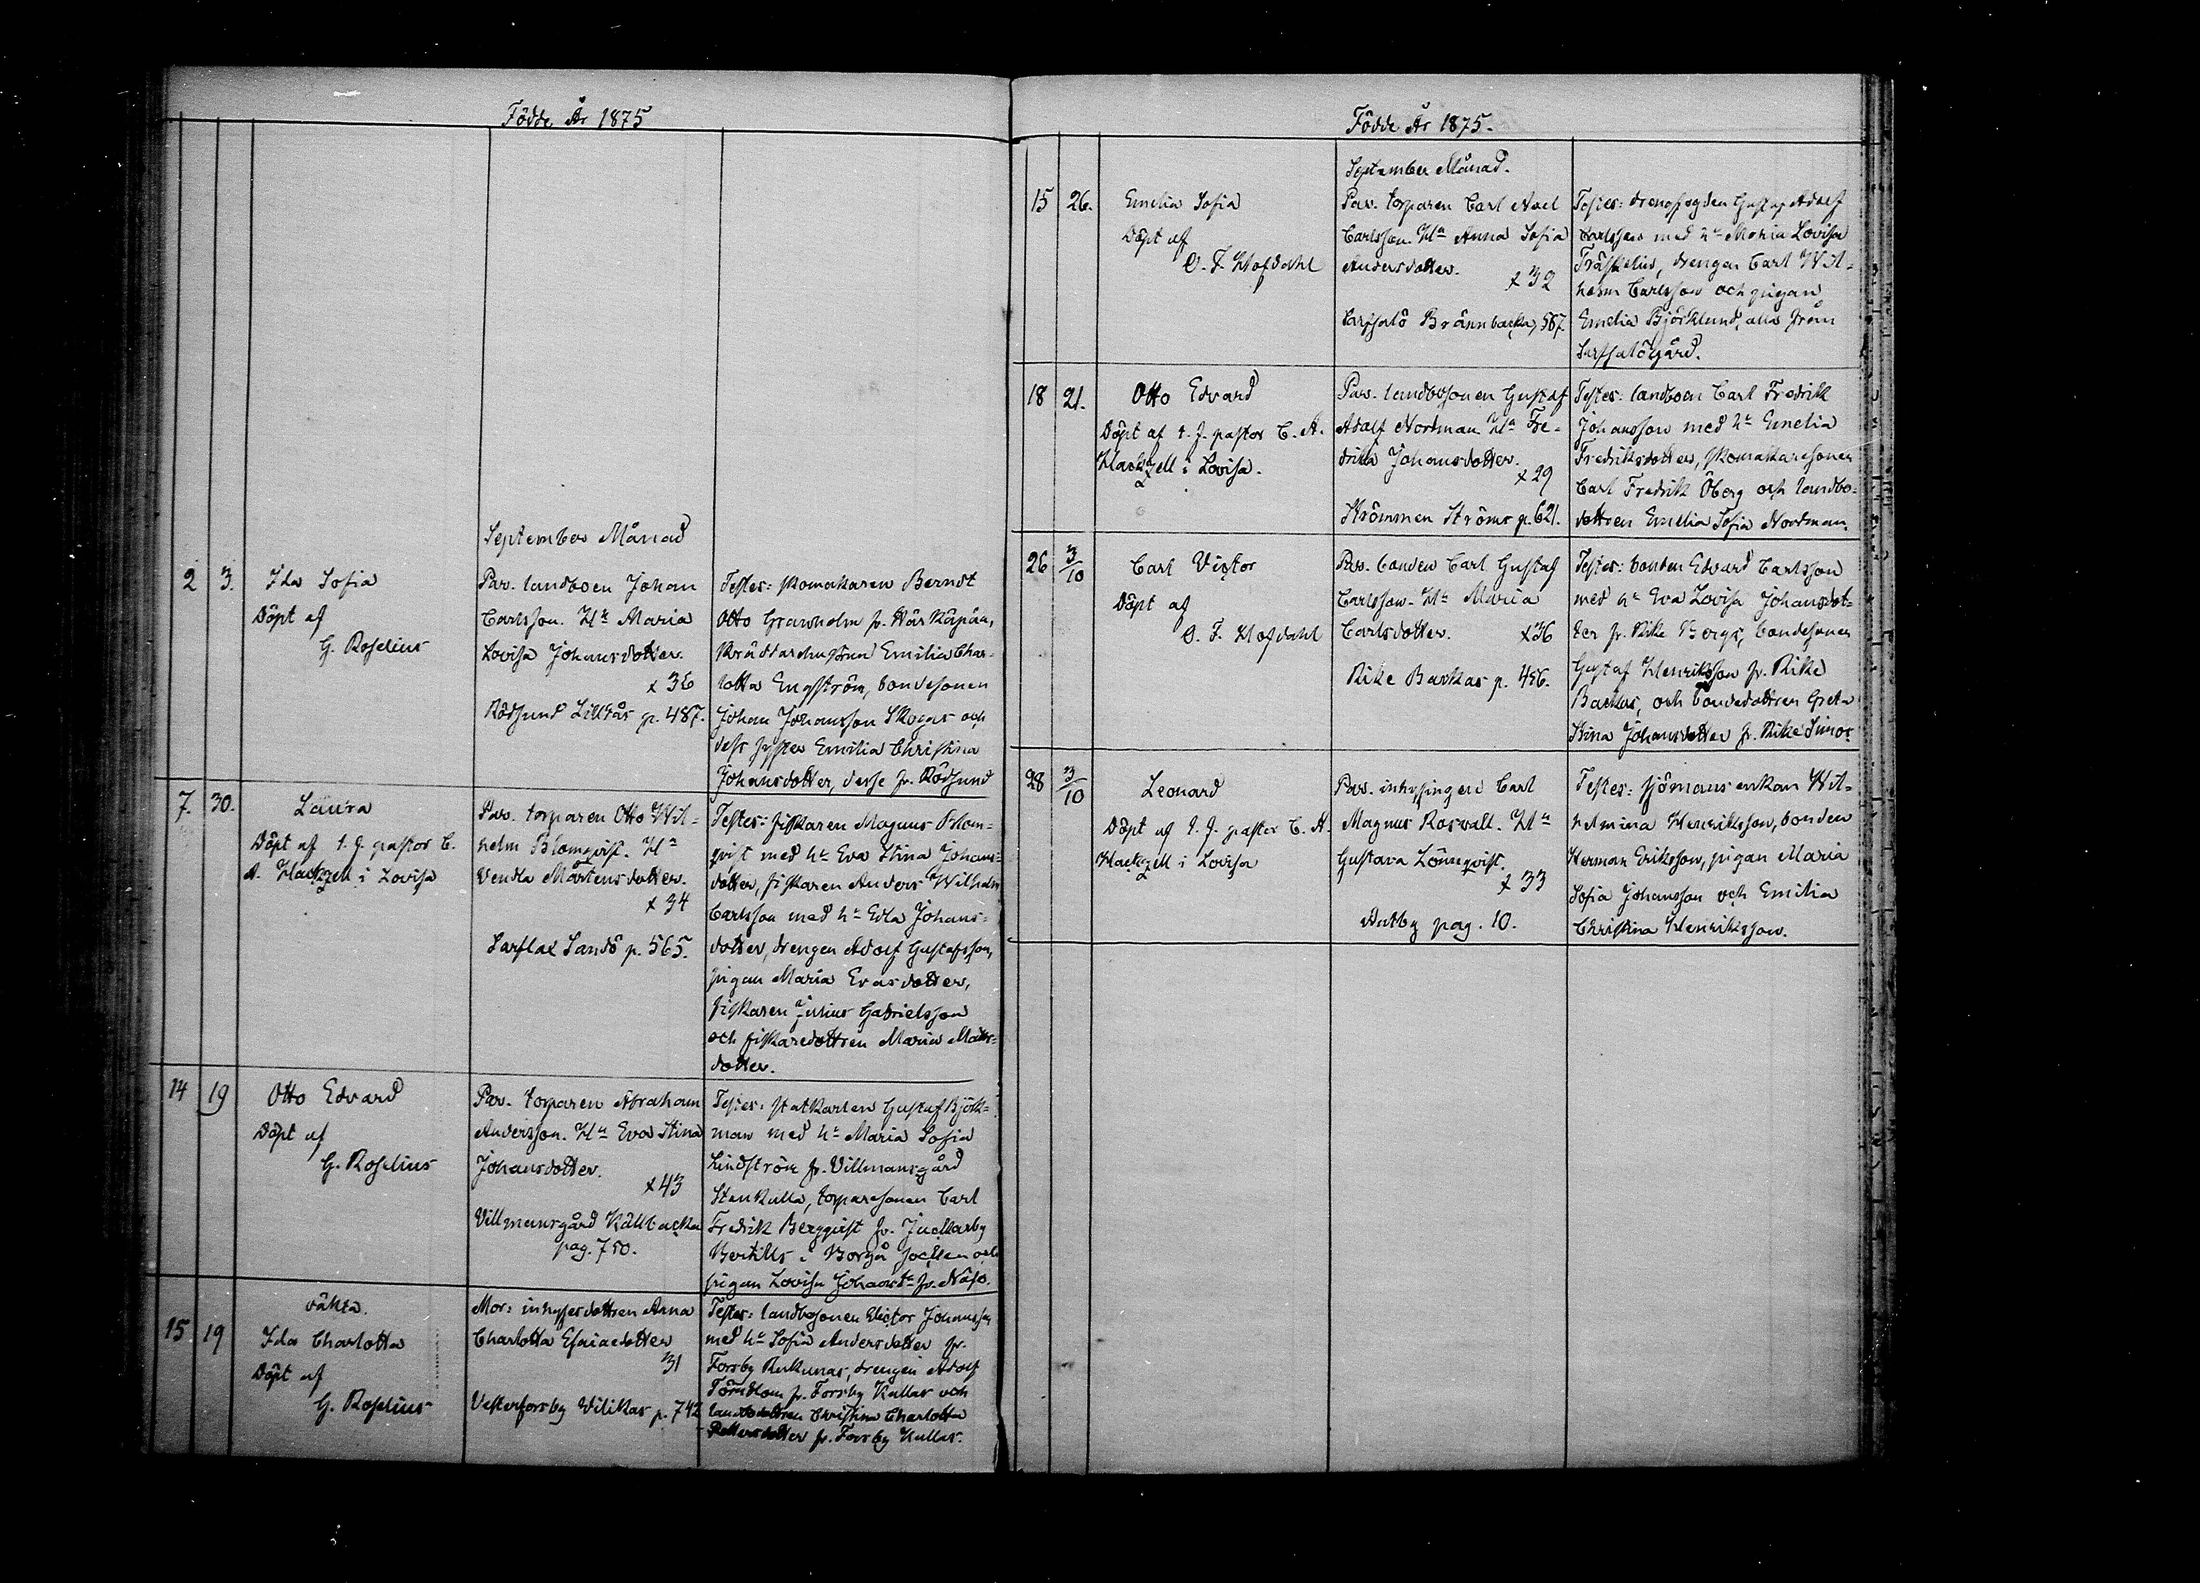 Födde År 1875
September Månad
2 3. Ida Sofia
Döpt af
G. Roselius
Par. landboen Johan
Carlsson. Hu Maria
Lovisa Johansdotter.
x 36
Rödsund Lillkås p. 487.
Testes: skomakaren Berndt
Otto Granholm fr. Härkäpää,
Skräddarehustrun Emilia Char-
lotta Engström, bondesonen
Johan Johansson Skogas och
dess syster Emilia Christina
Johansdotter, desse fr. Rödsund
7. 30. Laura
Döpt af t. f. pastor C.
A. Hackzell i Lovisa
Par. torparen Otto Wil-
helm Blomqvist. Hu
Vendla Mårtensdotter.
x 34
Sarflax Sandö p. 565.
Testes: fiskaren Magnus Blom-
qvist med hu Eva Stina Johans-
dotter, fiskaren Anders Wilhelm
Carlsson med hu Edla Johans-
dotter, drengen Adolf Gustafsson,
pigan Maria Evasdotter,
fiskaren Julius Gabrielsson
och fiskaredottren Maria Mats-
dotter.
14 19 Otto Edvard
Döpt af
G. Roselius
Par. torparen Abraham
Andersson. Hu Eva Stina
Johansdotter.
x 43
Villmansgård Källbacka
pag. 750.
Testes: statkarlen Gustaf Björk-
man med hu Maria Sofia
Lindström fr. Villmansgård
Stenkulla, torparesonen Carl
Fredrik Bergqvist fr. Juckarby
Bertills i Borgå socken och
pigan Lovisa Johansdr fr. Näse.
oäkta.
15 19 Ida Charlotta
Döpt af
G. Roselius
Mor: inhysesdottren Anna
Charlotta Esaiaedotter
31
Vesterforsby Vilikas p. 742
Testes: landbosonen Victor Johansson
med hu Sofia Andersdotter fr.
Forsby drengen Adolf
Törnblom fr. Forsby Kullas och
landbodottren Christina Charlotta
fr. Forsby Kullas.
Födde År 1875.
September Månad.
15 26. Emelia Sofia
Döpt af
O. F. Hofdahl
Par. torparen Carl Axel
Carlsson. Hu Anna Sofia
Andersdotter.
x 32
Sarfsalö Brännbacka, 587
Testes: drengfogden Gustaf Adolf
Carlsson med hu Maria Lovisa
Träskelin, drengen Carl Wil-
helm Carlsson och pigan
Emelia Björklund, alla från
Sarfsalögård.
18 21. Otto Edvard
Döpt af t. f. pastor C. A.
Hackzell i Lovisa.
Par. landbosonen Gustaf
Adolf Nordman Hu Fre-
drika Johansdotter.
x 29
Strömmen Ströms p. 621.
Testes: landboen Carl Fredrik
Johansson med hu Emelia
Fredriksdotter, skomakaresonen
Carl Fredrik Öberg och landbo-
dottren Emelia Sofia Nordman.
26 3/10 Carl Victor
Döpt af
O. F. Hofdahl
Par. bonden Carl Gustaf
Carlsson. Hu Maria
Carlsdotter.
x 36
Rike Backas p. 456.
Testes: bonden Edvard Carlsson
med hu Eva Lovisa Johansdot-
ter fr. Rike Bergs, bondesonen
Gustaf Henriksson fr. Rike
Backas, och bondedottren Greta
Stina Johansdotter fr. Rike Simos.
28 3/10 Leonard
Döpt af t. f. pastor C. A.
Hackzell i Lovisa
Par. inhysingen Carl
Magnus Rosvall. Hu
Gustava Lönnqvist.
x 33
Antby pag. 10.
Testes: sjömans enkan Wil-
helmina Henriksson, bonden
Herman Eriksson, pigan Maria
Sofia Johansson och Emilia
Christina Henriksson.